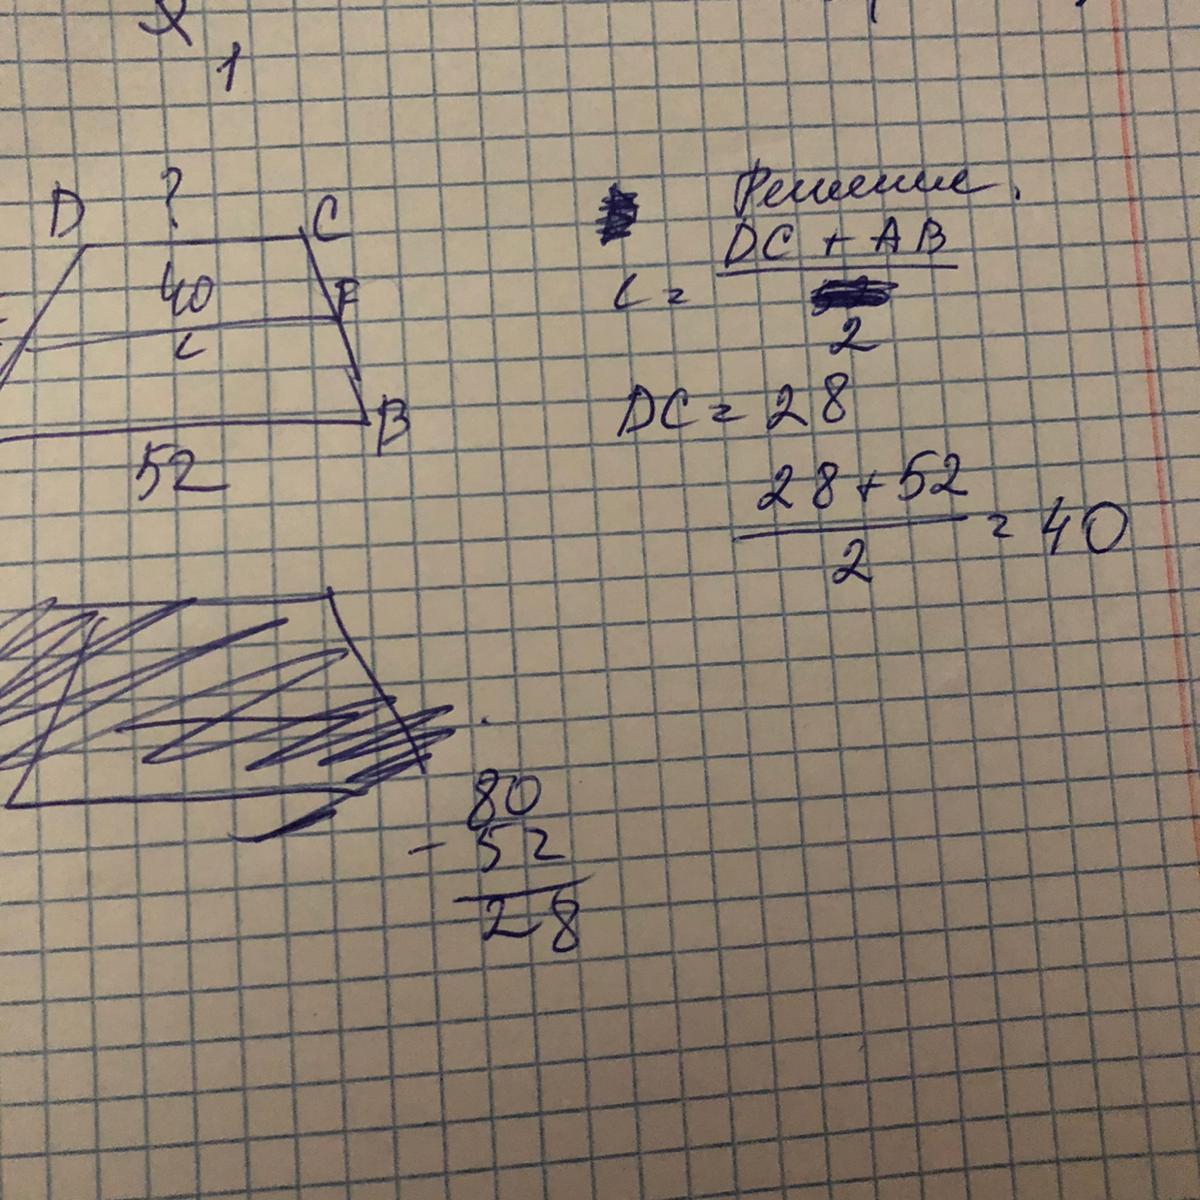 1
D ? C
40 F
c
B
52
Решение.
c = DC + AB
2
DC = 28
28 + 52 = 40
2
80
- 52
28